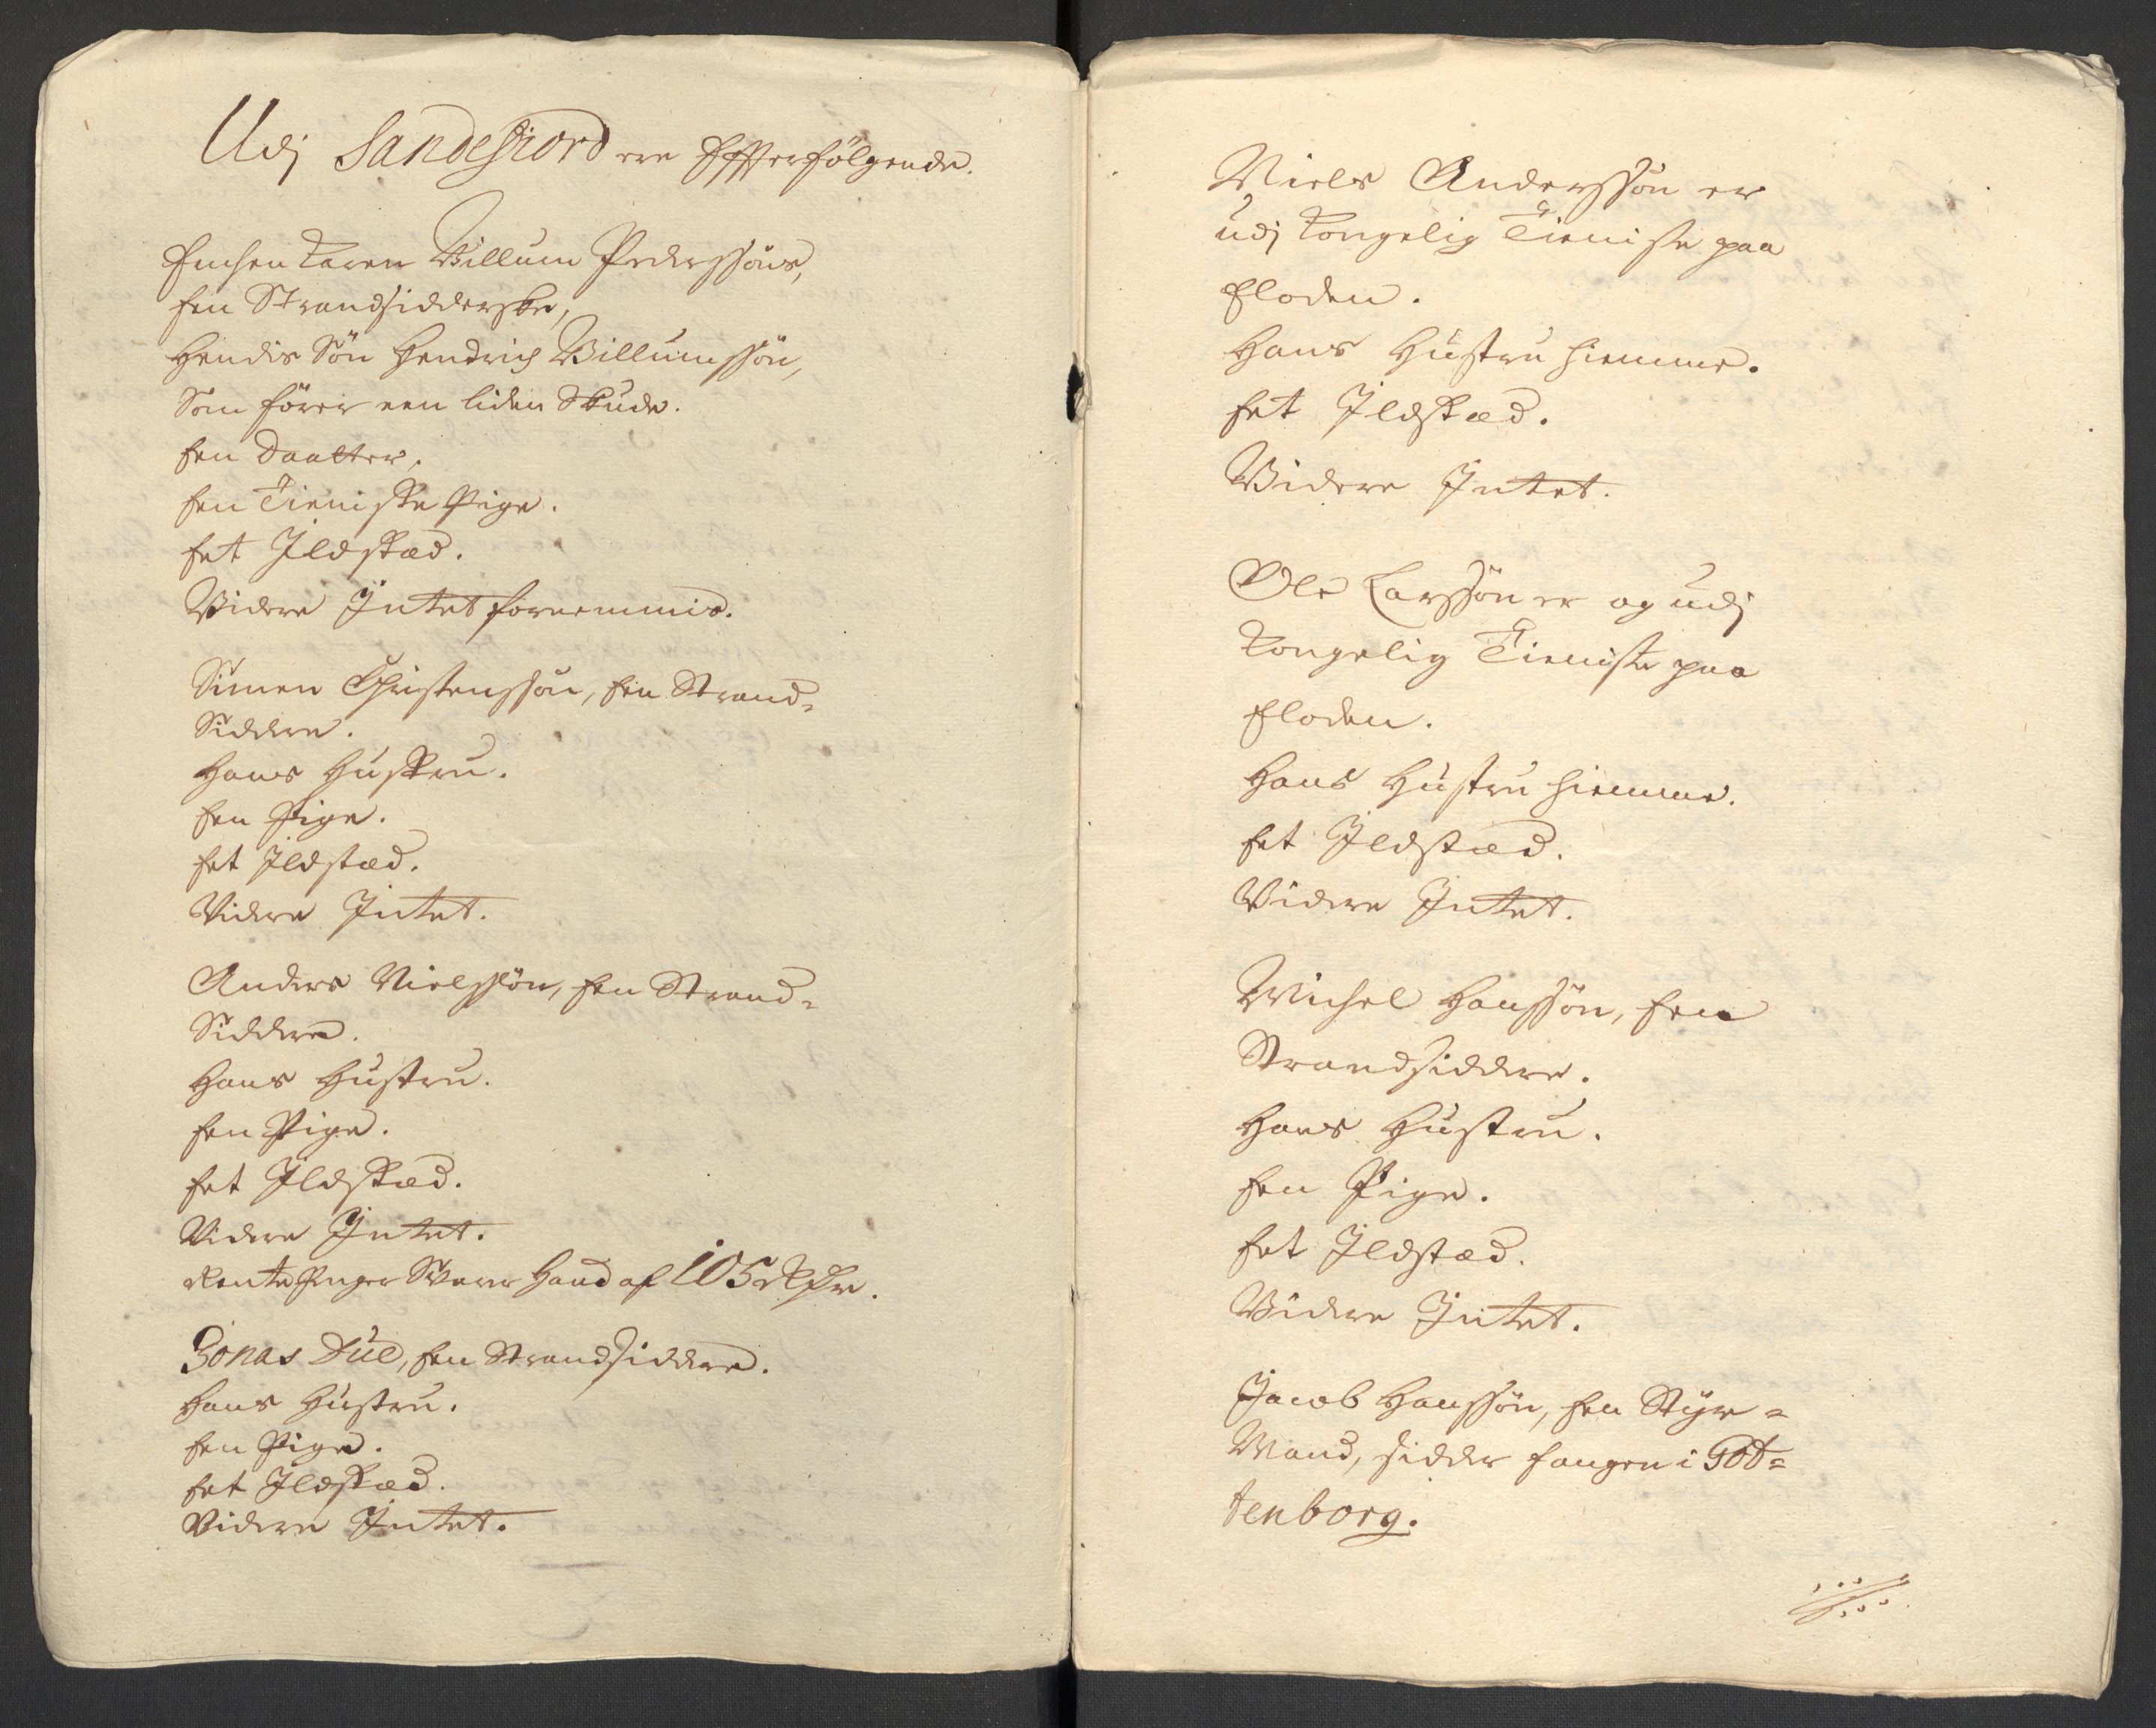 Udj Sandefiord ere Effterfölgende.
Enchen Karen Willum Pederssöns,
Een Strandsidderske,
Hendis Sön Hendrich Willumssön,
Som förer een liden Skude.
Een Daatter,
Een Tieniste Pige.
Eet Ildstæd.
Videre Intet fornemmis.
Simen Christenssön, Een Strand-
Siddere.
Hans Hustru.
Een Pige.
Eet Ildstæd.
Videre Intet.
Anders Nielssön, Een Strand-
Siddere.
Hans Hustru.
Een Pige.
Eet Ildstæd.
Videre Intet.
Rente Penger Svarer Hand af 105 Rdr.
Jonas Due, Een Strandsiddere.
Hans Hustru.
Een Pige.
Eet Ildstæd.
Videre Intet.
Niels Anderssön er
udj Kongelig Tieniste paa
Floden.
Hans Hustru hiemme.
Eet Ildstæd.
Videre Intet.
Ole Larssön er og udj
Kongelig Tieniste paa
Floden.
Hans Hustru hiemme.
Eet Ildstæd.
Videre Intet.
Michel Hanssön, Een
Strandsiddere.
Hans Hustru.
Een Pige.
Eet Ildstæd.
Videre Intet.
Jacob Hanssön, Een Styr-
Mand, sidder fangen i Got-
tenborg.